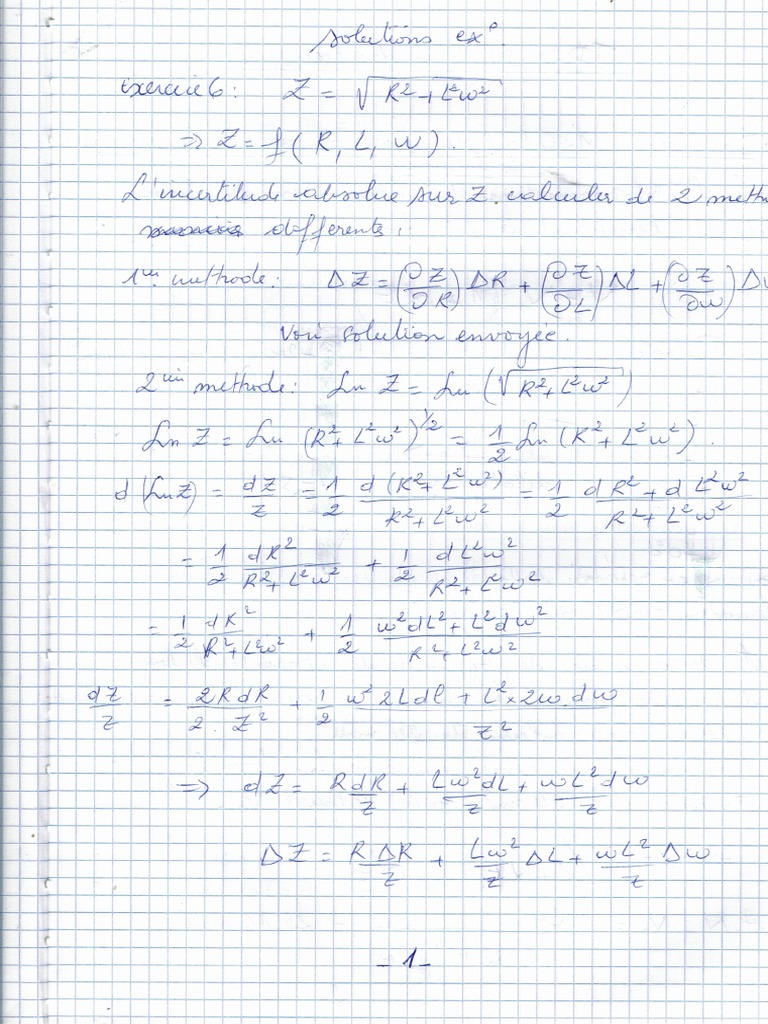 solutions exo.
Exercice 6 : Z = √(R² + L²w²)
⇒ Z = f(R, L, w).
L'incertitude absolue sur Z. calculer de 2 meth
differente.
1ère methode : ΔZ = (∂Z/∂R) ΔR + (∂Z/∂L) ΔL + (∂Z/∂w) Δw
Voir solution envoyée.
2ème methode : Ln Z = Ln (√(R² + L²w²))
Ln Z = Ln (R² + L²w²)^1/2 = 1/2 Ln (R² + L²w²).
d(LnZ) = dZ/Z = 1/2 d(R² + L²w²)/(R² + L²w²) = 1/2 (dR² + dL²w²)/(R² + L²w²)
= 1/2 dR²/(R² + L²w²) + 1/2 dL²w²/(R² + L²w²)
= 1/2 dR²/(R² + L²w²) + 1/2 (w²dL² + L²dw²)/(R² + L²w²)
dZ/Z = 2RdR/(2. Z²) + 1/2 (w² 2Ldl + L² × 2w.dw)/Z²
⇒ dZ = RdR/Z + Lw²dL/Z + wL²dw/Z
ΔZ = RΔR/Z + Lw²/Z ΔL + wL²/Z Δw
- 1 -